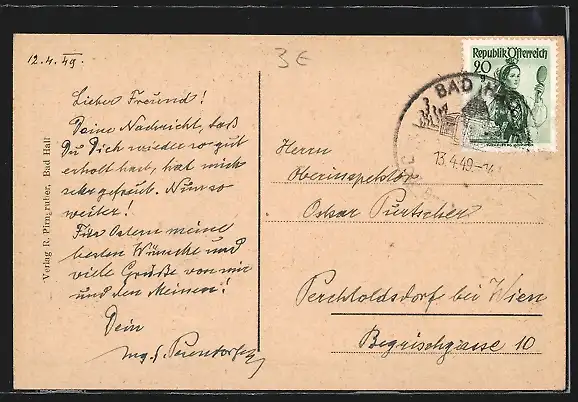 12.4.49.
3 €
Lieber Freund!
Deine Nachricht, daß
Du Dich wieder so gut
erholt hast, hat mich
sehr gefreut. Nur so
weiter!
Für Ostern meine
besten Wünsche und
viele Grüße von mir
und den Meinen!
Dein
Verlag R. Pirngruber, Bad Hall
Republik Österreich
20
BAD HA
13.4.49.-
Herrn
Oberinspektor
Oskar Purtscher
Perchtoldsdorf bei Wien
10